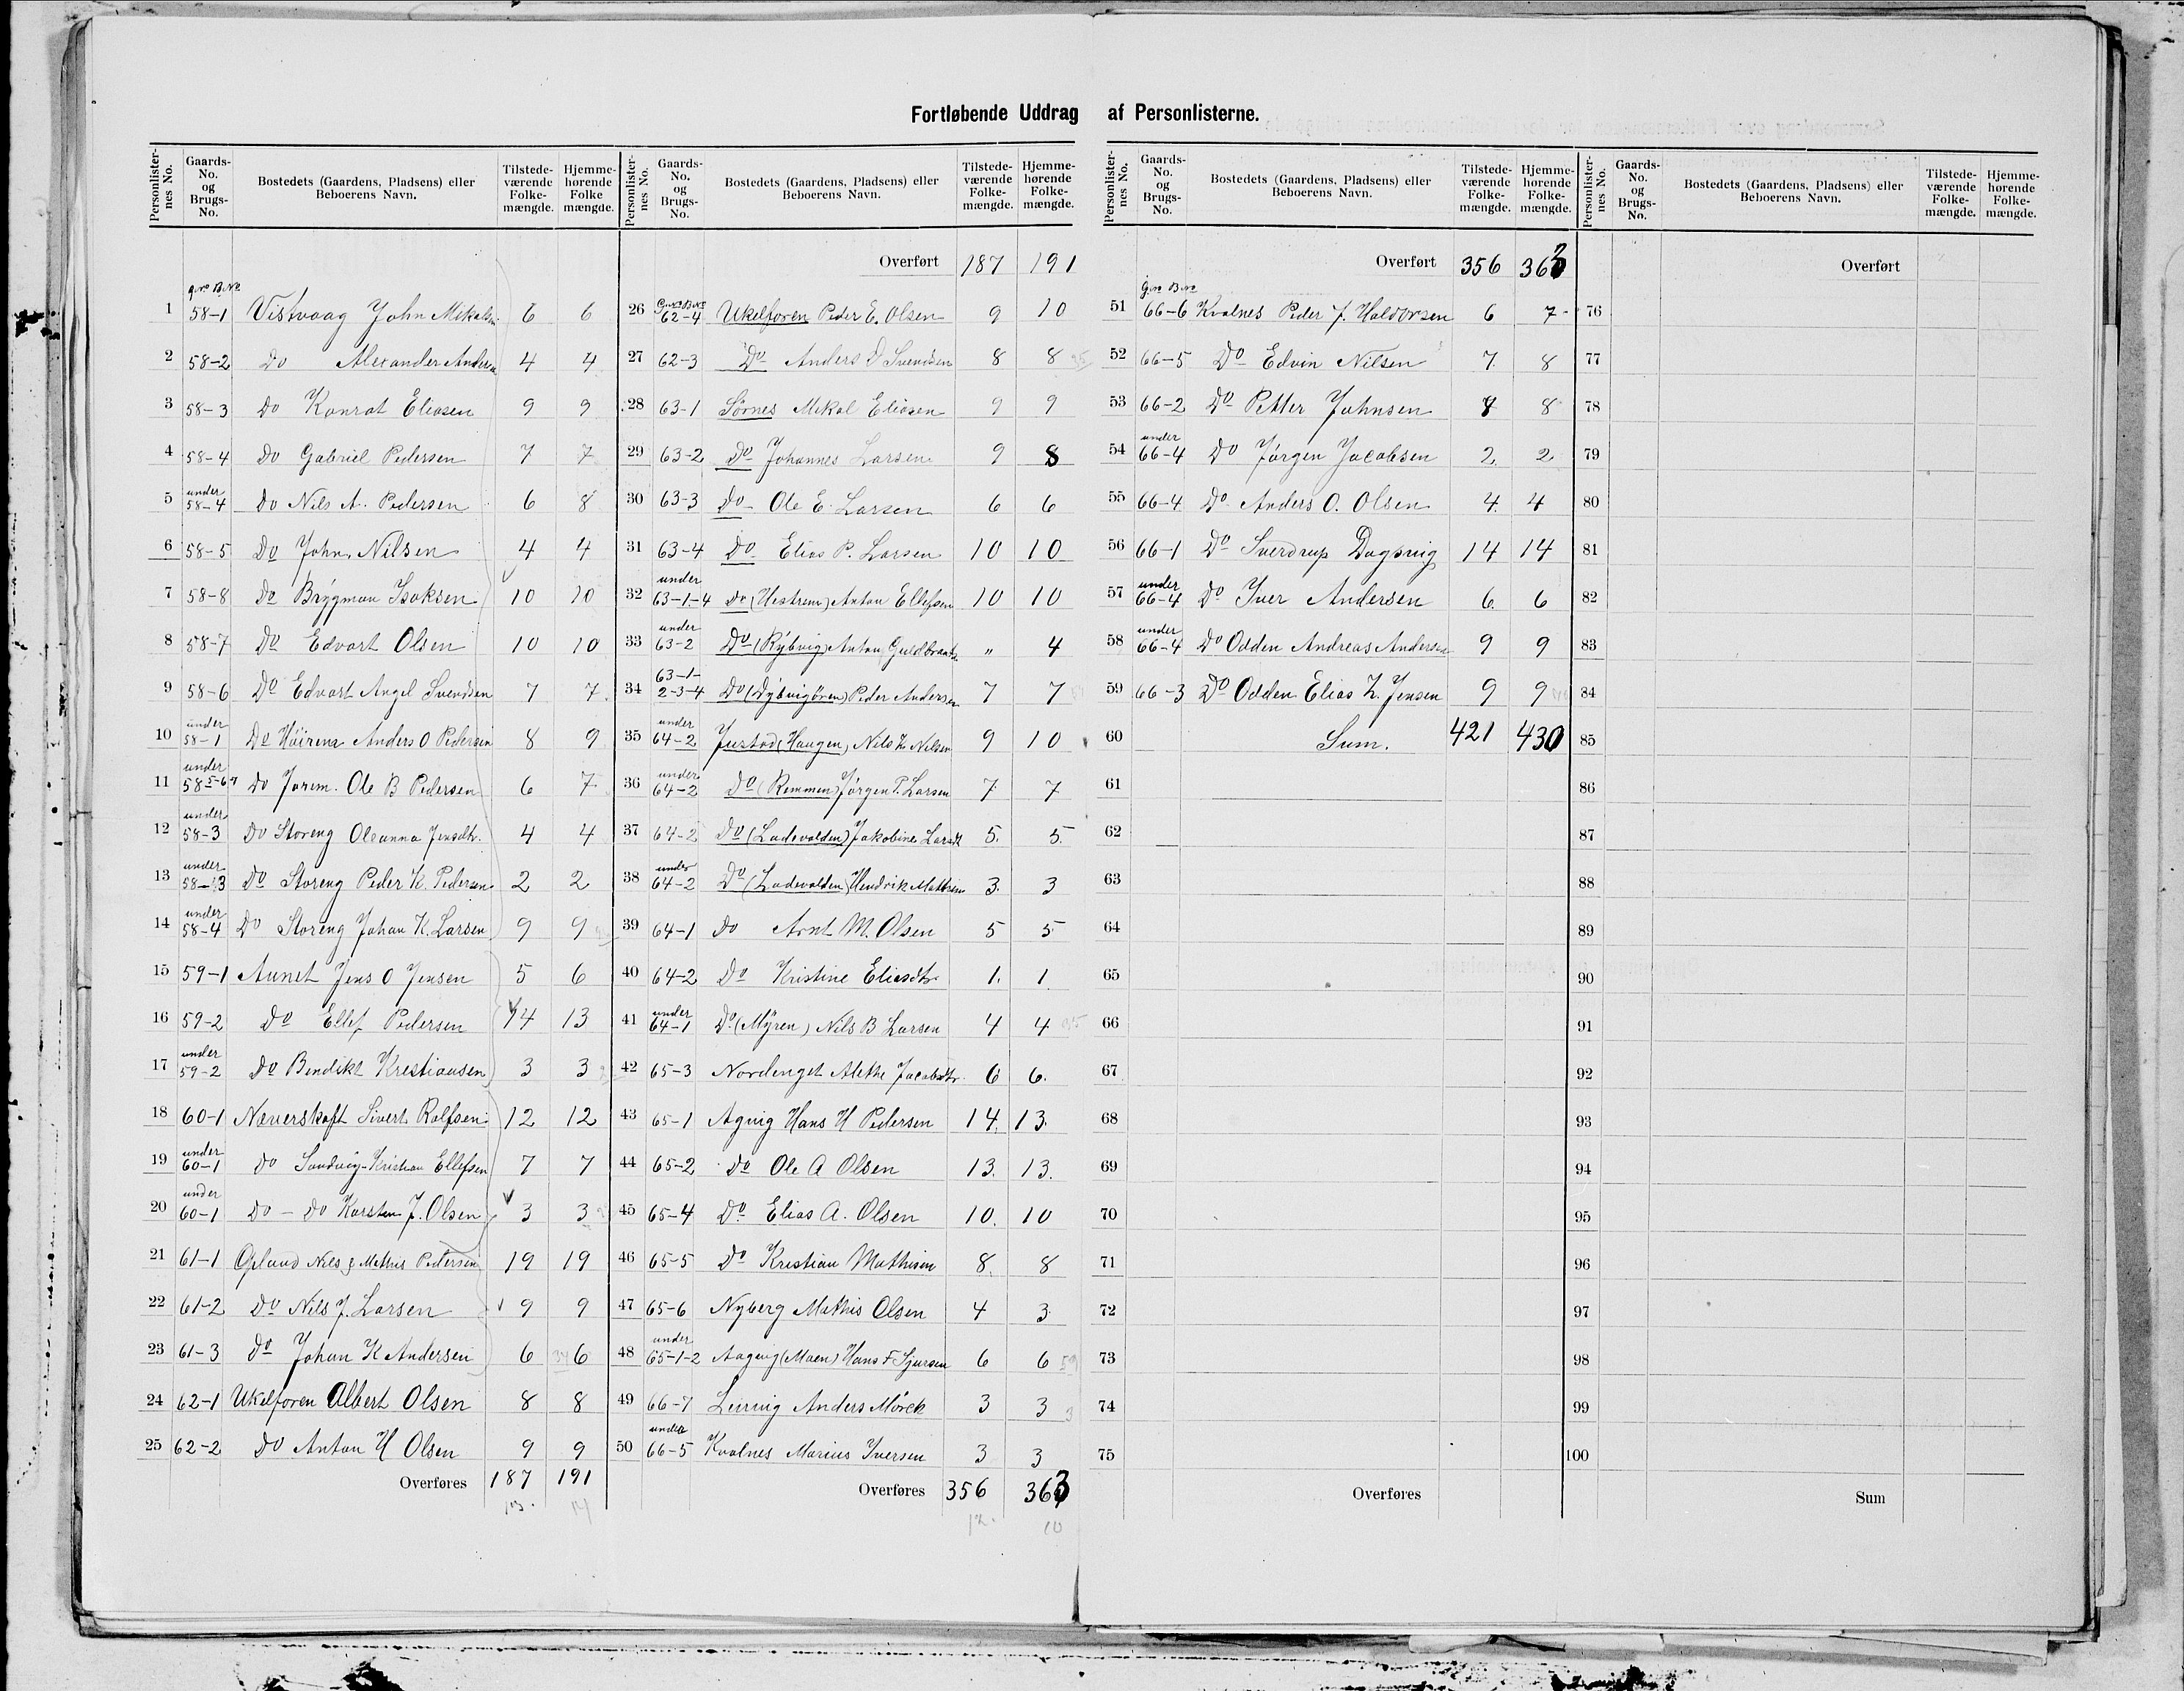 Fortløbende Uddrag af Personlisterne.
Personlister-nes No. Gaards-No. og Brugs-No. Bostedets (Gaardens, Pladsens) eller Beboerens Navn. Tilstede-værende Folke-mængde. Hjemme-hørende Folke-mængde.
G.No B.No
1 58-1 Vistvaag John Mikals. 6 6
2 58-2 Do Alexander Anders. 4 4
3 58-3 Do Konrat Eliasen 9 9
4 58-4 Do Gabriel Pedersen 7 7
5 under 58-4 Do Nils A. Pedersen 6 8
6 58-5 Do John Nilsen 4 4
7 58-8 Do Brygman Isaksen 10 10
8 58-7 Do Edvart Olsen 10 10
9 58-6 Do Edvart Angel Svendsen 7 7
10 under 58-1 Do Höirena Anders O Pedersen 8 9
11 under 58 5-6-7 Do Jorem. Ole B Pedersen 6 7
12 under 58-3 Do Storeng Oleanna Jensdtr. 4 4
13 under 58-3 Do Storeng Peder K. Pedersen 2 2
14 under 58-4 Do Storeng Johan K. Larsen 9 9
15 59-1 Aunet Jens O Jensen 5 6
16 59-2 Do Ellef Pedersen 14 13
17 under 59-2 Do Bendikt Kristiansen 3 3
18 60-1 Næverskaft Sivert Rolfsen 12 12
19 under 60-1 Do Sandvig Kristian Ellefsen 7 7
20 under 60-1 Do - Do Karsten J. Olsen 3 3
21 61-1 Opland Nils & Mathis Pedersen 19 19
22 61-2 Do Nils J. Larsen 9 9
23 61-3 Do Johan K Andersen 6 6
24 62-1 Ukelforen Albert Olsen 8 8
25 62-2 Do Anton H Olsen 9 9
Overføres 187 191
Personlister-nes No. Gaards-No. og Brugs-No. Bostedets (Gaardens, Pladsens) eller Beboerens Navn. Tilstede-værende Folke-mængde. Hjemme-hørende Folke-mængde.
Overført 187 191
G.No B.No
26 62-4 Ukelforen Peder E. Olsen 9 10
27 62-3 Do Anders D Svendsen 8 8
28 63-1 Sørnes Mikal Eliasen 9 9
29 63-2 Do Johannes Larsen 9 8
30 63-3 Do Ole E. Larsen 6 6
31 63-4 Do Elias P. Larsen 10 10
32 under 63-1-4 Do (Hestrem) Anton Ellefsen 10 10
33 under 63-2 Do (Rybvig) Anton Guldbrants. " 4
34 63-1-2-3-4 Do (Dybvigøren) Peder Andersen 7 7
35 under 64-2 Justad (Haugen) Nils K Nilsen 9 10
36 under 64-2 Do (Remmen) Jørgen P. Larsen 7 7
37 64-2 Do (Ladevolden) Jakobine Larsdt 5. 5.
38 under 64-2 Do (Ladevolden) Hendrik Mathisen 3. 3
39 64-1 Do Arnt M. Olsen 5 5
40 64-2 Do Kristine Eliasdtr 1. 1
41 under 64-1 Do (Myren) Nils B Larsen 4 4
42 65-3 Nordenget Alethe Jacobsdtr. 6 6.
43 65-1 Agvig Hans H Pedersen 14. 13.
44 65-2 Do Ole A Olsen 13. 13.
45 65-4 Do Elias A. Olsen 10. 10
46 65-5 Do Kristian Mathisen 8. 8
47 65-6 Nyberg Mathis Olsen 4 3
48 under 65-1-2 Aagvig (Moen) Hans F Sjursen 6 6
49 66-7 Leirvig Anders Mörck 3 3
50 under 66-5 Kvalnes Marius Iversen 3 3
Overføres 356 363
Personlister-nes No. Gaards-No. og Brugs-No. Bostedets (Gaardens, Pladsens) eller Beboerens Navn. Tilstede-værende Folke-mængde. Hjemme-hørende Folke-mængde.
Overført 356 363
G.No B.No
51 66-6 Kvalnes Peder J. Haldorsen 6 7
52 66-5 Do Edvin Nilsen 7. 8
53 66-2 Do Petter Johnsen 8 8
54 under 66-4 Do Jørgen Jacobsen 2. 2
55 66-4 Do Anders O. Olsen 4. 4
56 66-1 Do Sverdrup Dagsvig 14 14
57 under 66-4 Do Iver Andersen 6. 6
58 under 66-4 Do Odden Andreas Andersen 9 9
59 66-3 Do Odden Elias Z. Jensen 9 9
60 Sum. 421 430
61
62
63
64
65
66
67
68
69
70
71
72
73
74
75
Overføres
Personlister-nes No. Gaards-No. og Brugs-No. Bostedets (Gaardens, Pladsens) eller Beboerens Navn. Tilstede-værende Folke-mængde. Hjemme-hørende Folke-mængde.
Overført
76
77
78
79
80
81
82
83
84
85
86
87
88
89
90
91
92
93
94
95
96
97
98
99
100
Sum